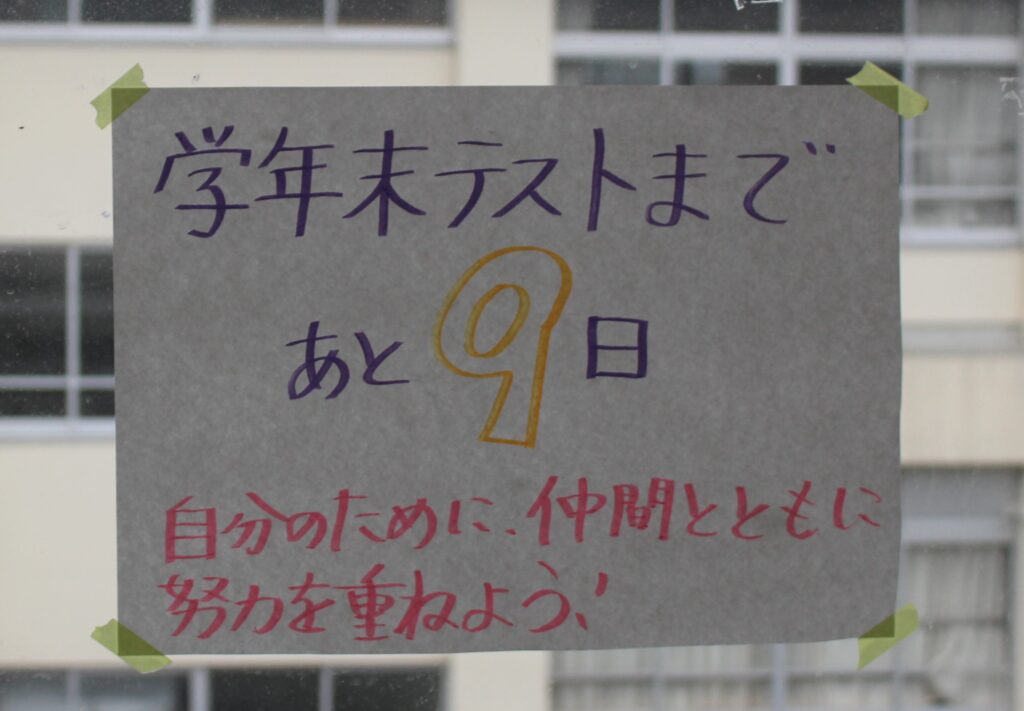 学年末テストまで
あと9日
自分のために、仲間とともに
努力を重ねよう!